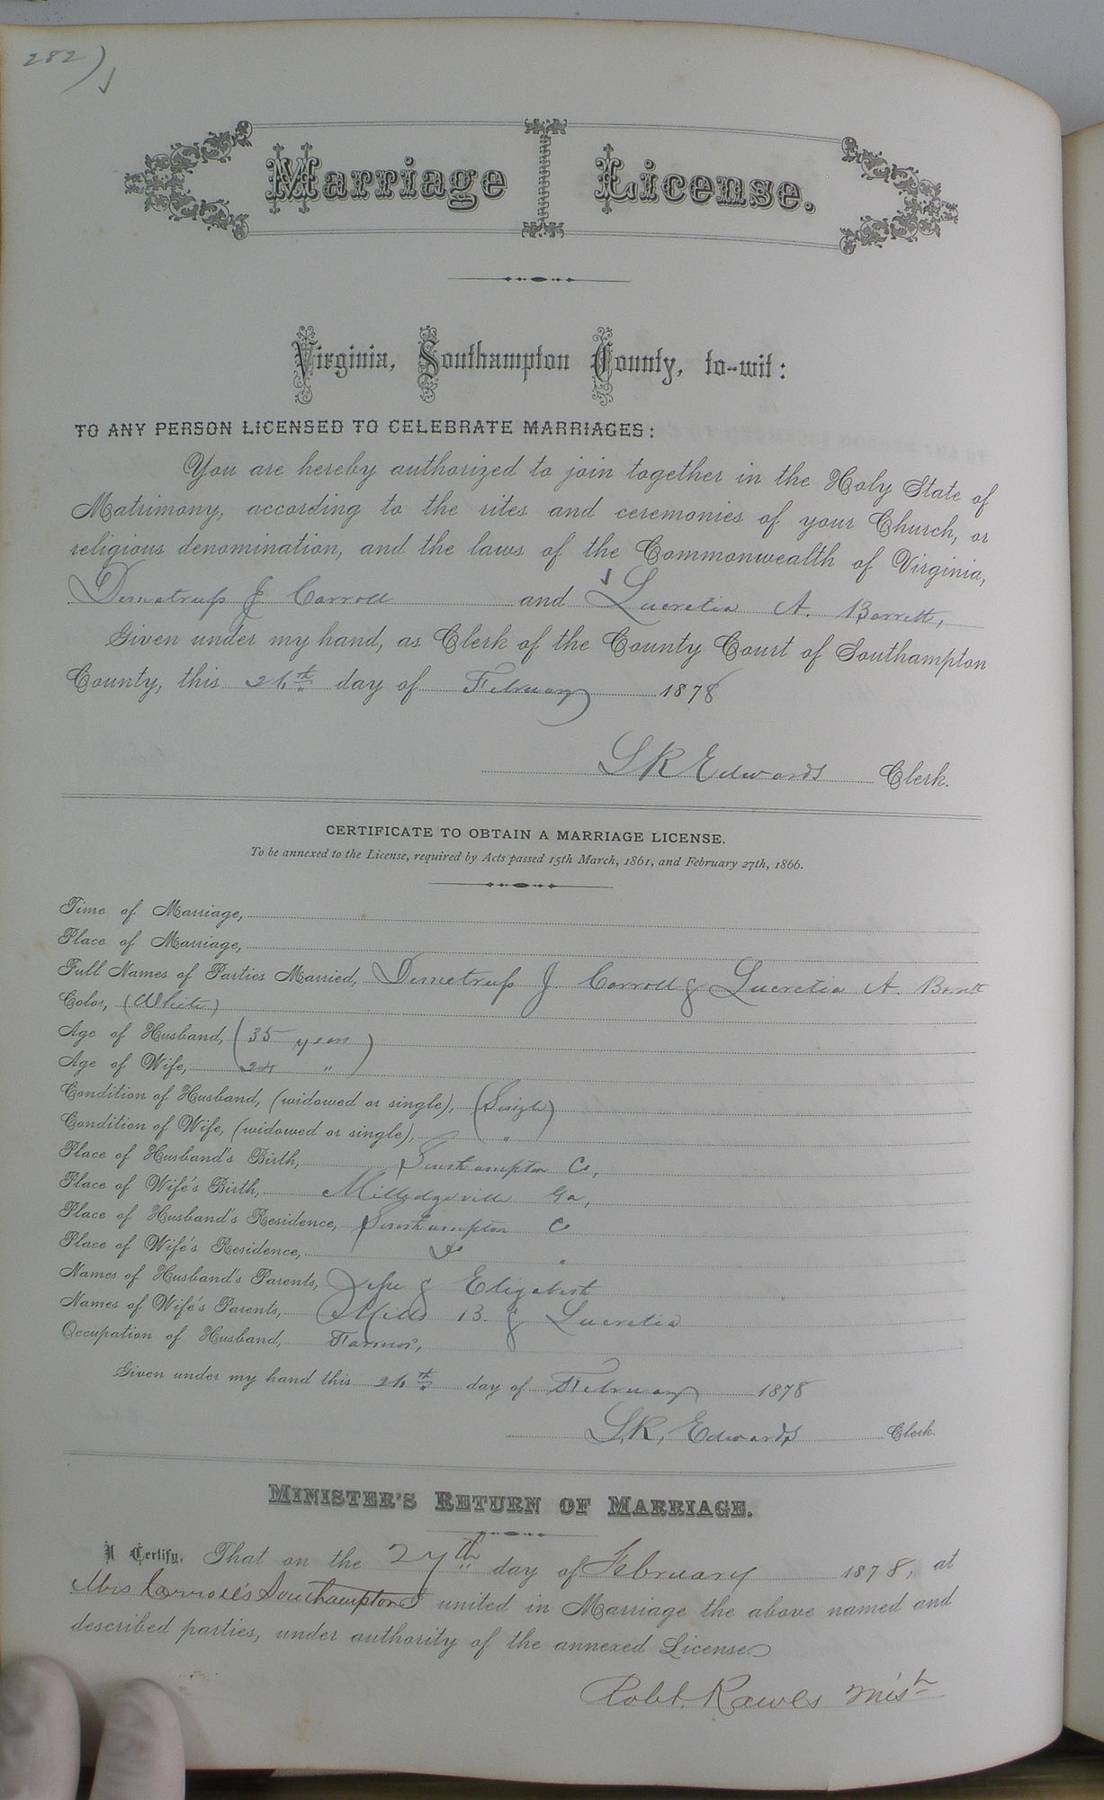 282)
Marriage License.
Virginia, Southampton County, to-wit:
TO ANY PERSON LICENSED TO CELEBRATE MARRIAGES:
You are hereby authorized to join together in the Holy State of
Matrimony, according to the rites and ceremonies of your Church, or
religious denomination, and the laws of the Commonwealth of Virginia,
J Carroll and Lucretia A. Barrett,
Given under my hand, as Clerk of the County Court of Southampton
County, this 26th day of February 1878
L R Edwards Clerk.
CERTIFICATE TO OBTAIN A MARRIAGE LICENSE.
To be annexed to the License, required by Acts passed 15th March, 1861, and February 27th, 1866.
Time of Marriage,
Place of Marriage,
Full Names of Parties Married, J. Carroll & Lucretia A. Barrett
Color, (White)
Age of Husband, (35 years)
Age of Wife, 24 "
Condition of Husband, (widowed or single), (Single)
Condition of Wife, (widowed or single), "
Place of Husband's Birth, Southampton Co,
Place of Wife's Birth, Milledgeville Ga,
Place of Husband's Residence, Southampton Co
Place of Wife's Residence, "
Names of Husband's Parents, & Elizabeth
Names of Wife's Parents, Mills B. & Lucretia
Occupation of Husband, Farmer,
Given under my hand this 26th day of February 1878
L. R. Edwards Clerk.
MINISTER'S RETURN OF MARRIAGE.
I Certify, That on the 27th day of February 1878, at
Mrs Carroll's Southampton I united in Marriage the above named and
described parties, under authority of the annexed License
Robt. Rawls